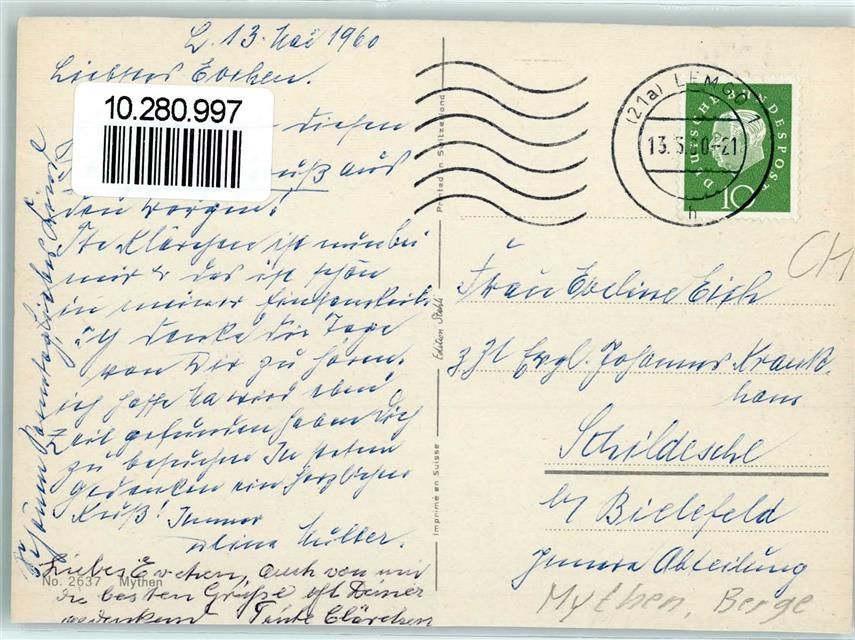 L. 13. Mai 1960
Liebstes Evchen.
10.280.997
diesen
Gruß aus
den Bergen!
Tte Klärchen ist nun bei
mir & das ist schön
in meiner Einsamkeit.
ich denke die Tage
von Dir zu hören.
ich hoffe wird eben
Zeit gefunden haben Dich
zu besuchen In stetem
Gedenken ein herzlicher
Kuß! Immer
deine Mutter.
Schönen Sonntag
Liebes Evchen, auch von mir
die besten Grüße oft Deiner
gedenkend Tante Clärchen
No. 2637 Mythen
Printed in Switzerland
Edition Stehli
Imprimé en Suisse
(21a) LEMGO
13.5.60-21
h
DEUTSCHE BUNDESPOST
10
CH
Frau Eveline Eich
z Zt Evgl. Johannes Kranken
haus
Schildesche
by Bielefeld
Innere Abteilung
Mythen, Berge